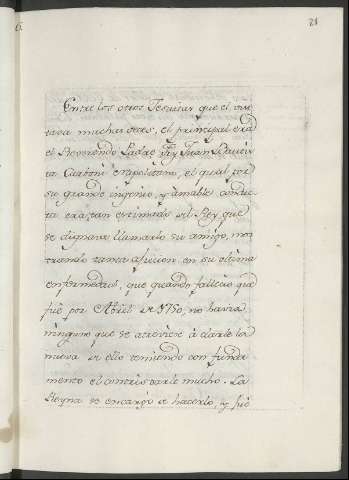 21
Entre los otros Jesuitas que el
tava muchas otras, el principal era
el Reverendo Padre Fry Juan Bautis
ta Carboni Napolitano, el qual por
su grande ingenio, y amable conduc
ta era tan estimado del Rey que
se dignava llamarlo su amigo, mos
trando tanta aficion en su ultima
enfermedad, que quando fallecio que
fue por Abril de 1750, no havia
ninguno que se atreviese à darle la
nueva de ello temiendo con funda
mento el contristarle mucho. La
Reyna se encargó de hacerlo, y fué